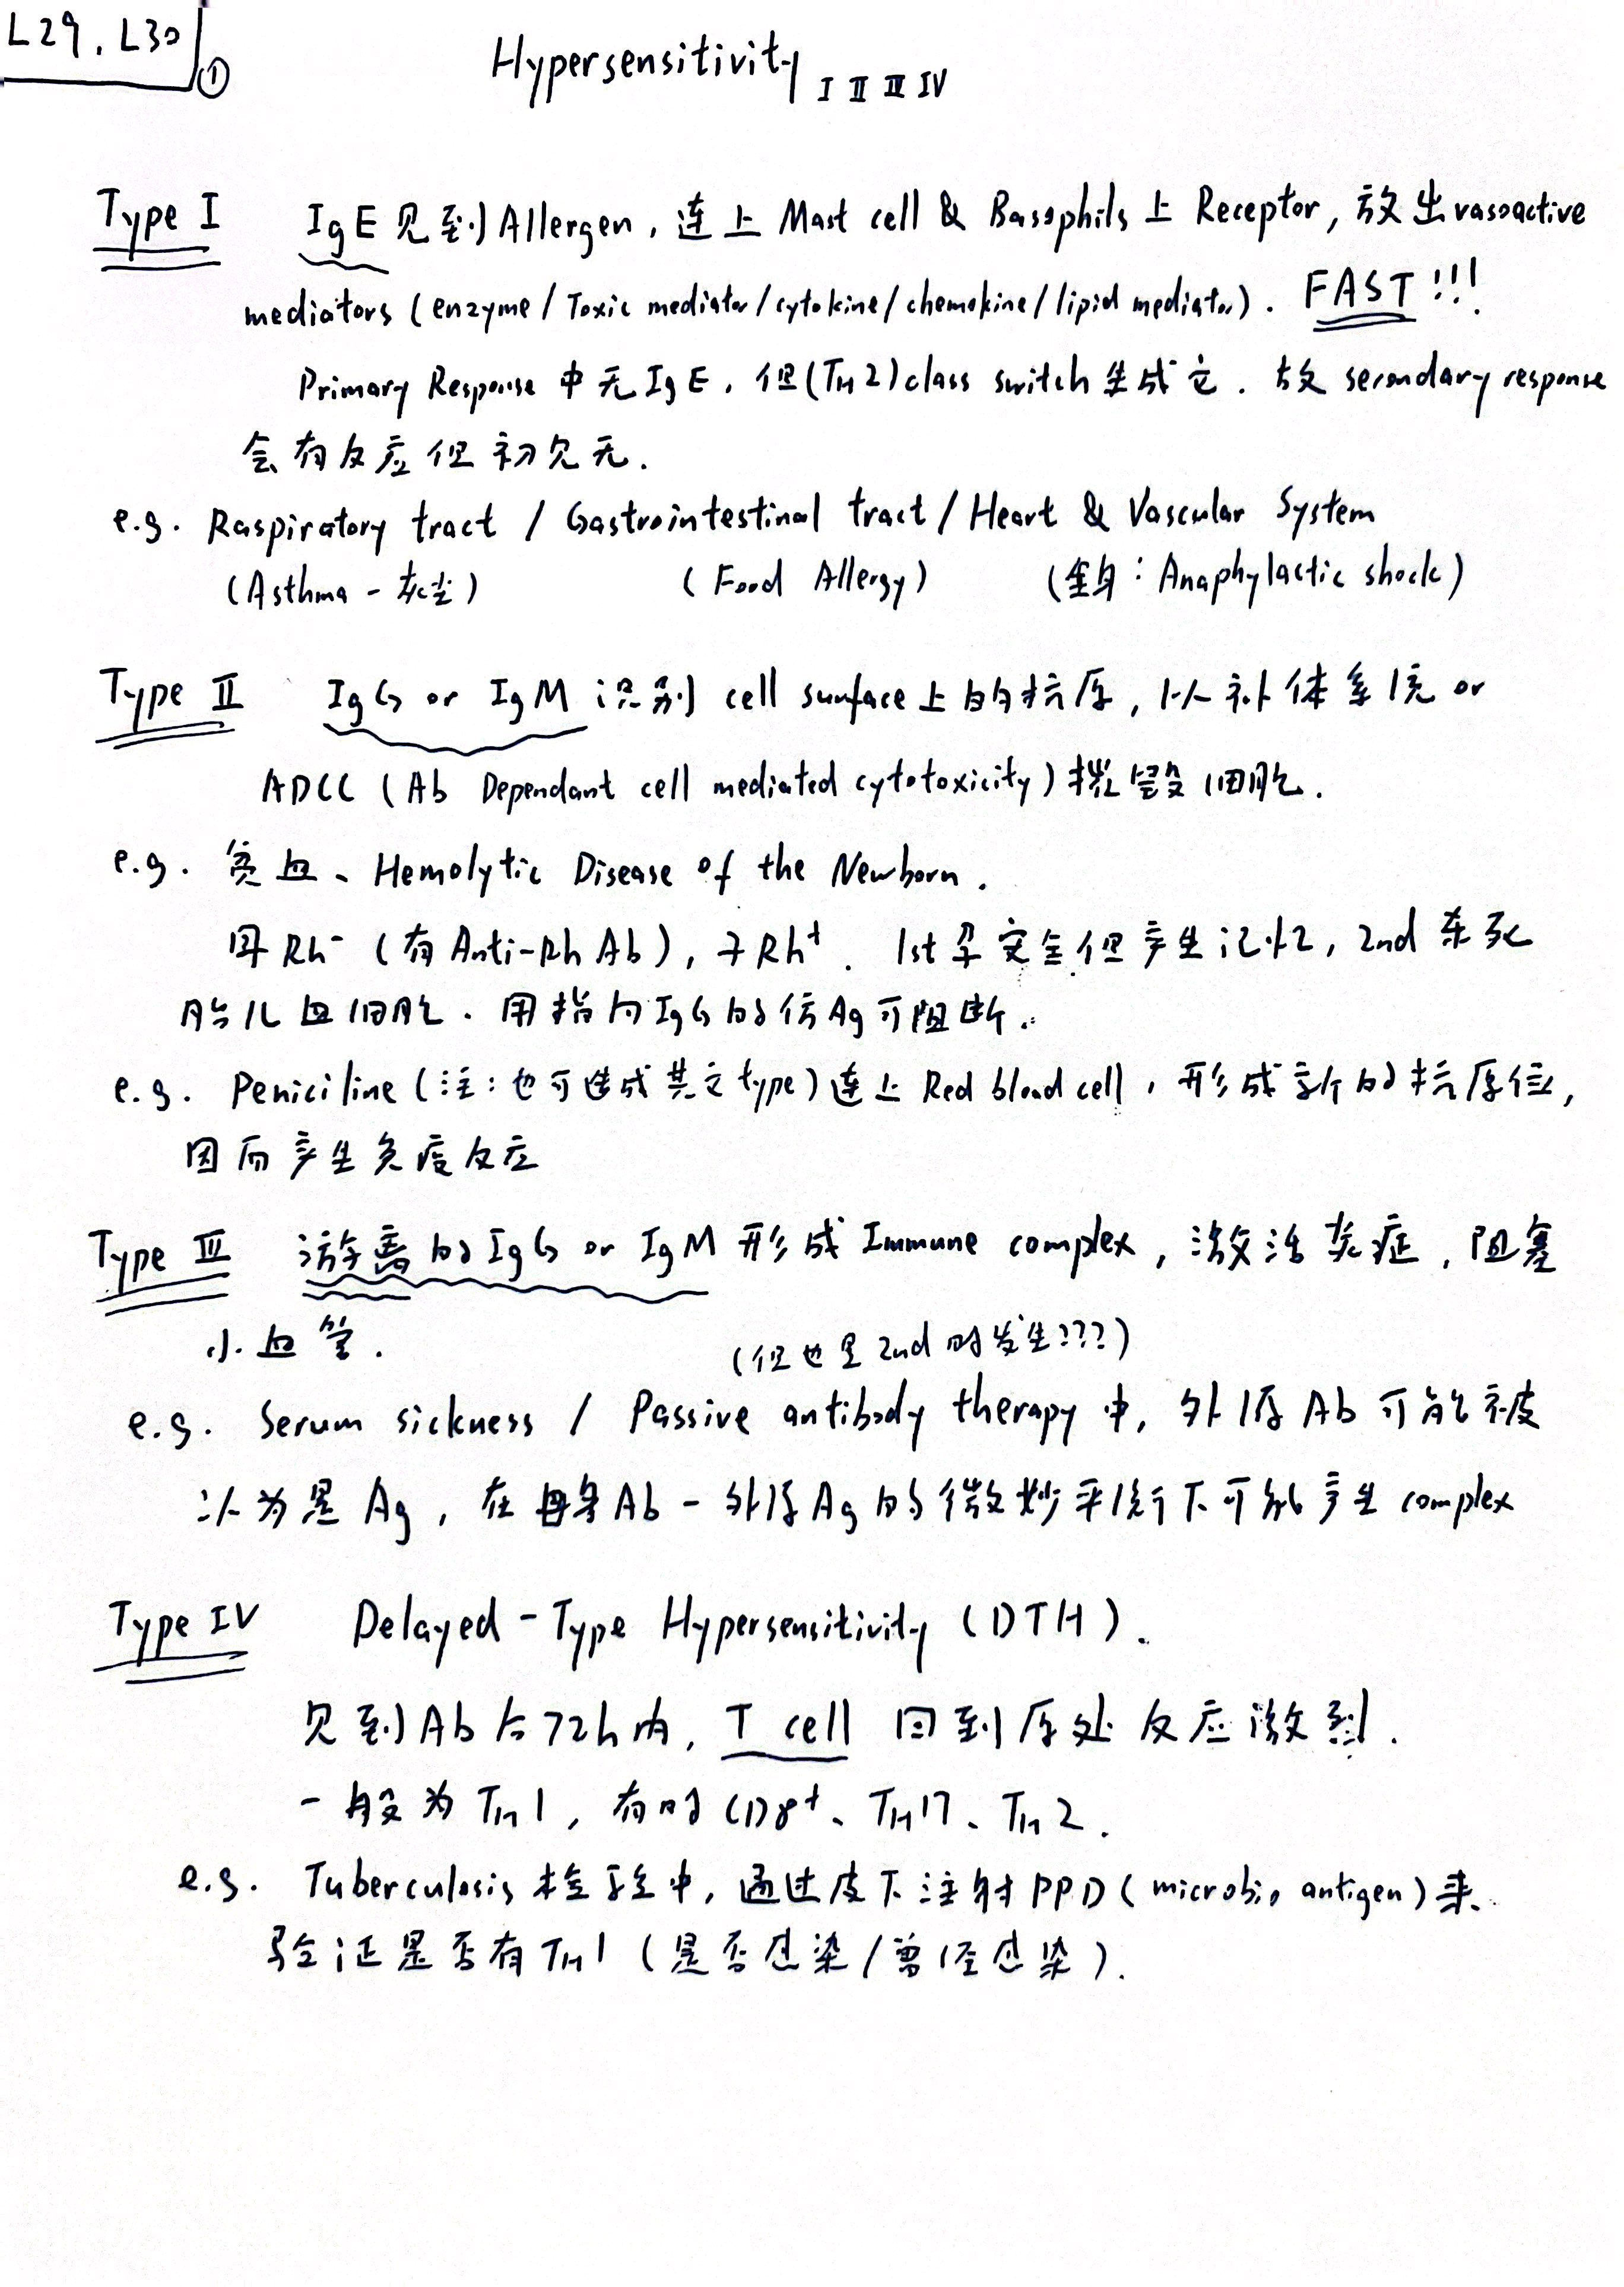 L29, L30
①
Hypersensitivity I II III IV
Type I IgE 见到 Allergen, 连上 Mast cell & Basophils 上 Receptor, 放出 vasoactive
mediators (enzyme / Toxic mediator / cytokine / chemokine / lipid mediator). FAST!!!
Primary Response 中无 IgE, 但 (TH2) class switch 生成它. 故 secondary response
会有反应但初见无.
e.g. Raspiratory tract / Gastrointestinal tract / Heart & Vascular System
(Asthma - 灰尘) (Food Allergy) (全身: Anaphylactic shock)
Type II IgG or IgM 识别 cell surface 上的抗原, 以补体系统 or
ADCC (Ab Dependant cell mediated cytotoxicity) 摧毁细胞.
e.g. 贫血、Hemolytic Disease of the Newborn.
母 Rh⁻ (有 Anti-Rh Ab), 子 Rh⁺. 1st 孕安全但产生记忆, 2nd 杀死
胎儿血细胞. 用指向 IgG 的仿 Ag 可阻断.
e.g. Peniciline (注: 也可造成其它 type) 连上 Red blood cell, 形成新的抗原位,
因而产生免疫反应
Type III 游离的 IgG or IgM 形成 Immune complex, 激活炎症, 阻塞
小血管.
(但也是 2nd 时发生???)
e.g. Serum sickness / Passive antibody therapy 中, 外源 Ab 可能被
认为是 Ag, 在母亲 Ab - 外源 Ag 的微妙平衡下可能产生 complex
Type IV Delayed-Type Hypersensitivity (DTH).
见到 Ab 后 72h 内, T cell 回到原处反应激烈.
一般为 TH1, 有时 CD8⁺、TH17、TH2.
e.g. Tuberculosis 检验中, 通过皮下注射 PPD (microbio antigen) 来
验证是否有 TH1 (是否感染 / 曾经感染).